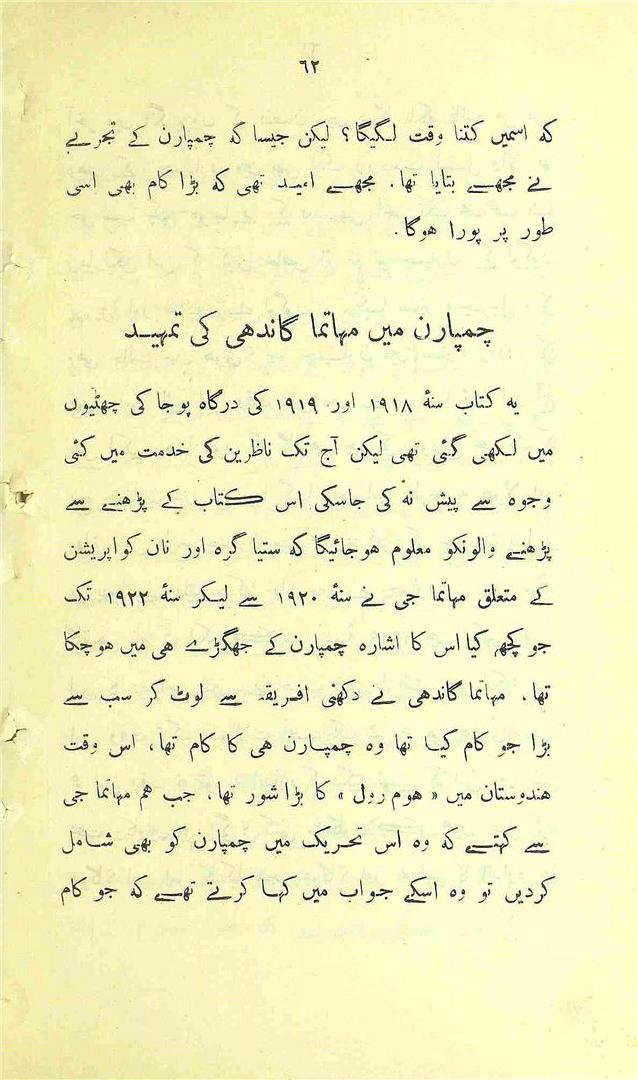 ٦٢
که اسمیں کتنا وقت لگیگا؟ لیکن جیسا که چمپارن کے تجربے
نے مجھے بتایا تھا. مجھے امید تھی که بڑا کام بھی اسی
طور پر پورا ہوگا.
چمپارن میں مہاتما گاندھی کی تمہید
یه کتاب سنۂ ۱۹۱۸ اور ۱۹۱۹ کی درگاه پوجا کی چھٹیوں
میں لکھی گئی تھی لیکن آج تک ناظرین کی خدمت میں کئی
وجوه سے پیش نه کی جاسکی اس کتاب کے پڑھنے سے
پڑھنے والونکو معلوم ہوجائیگا که ستیا گره اور نان کواپریشن
کے متعلق مہاتما جی نے سنۂ ۱۹۲۰ سے لیکر سنۂ ۱۹۲۲ تک
جو کچھ کیا اس کا اشاره چمپارن کے جھگڑے ہی میں ہوچکا
تھا. مہاتما گاندھی نے دکھنی افریقہ سے لوٹ کر سب سے
بڑا جو کام کیا تھا وه چمپارن ہی کا کام تھا، اس وقت
ہندوستان میں «ہوم رول» کا بڑا شور تھا. جب ہم مہاتما جی
سے کہتے که وه اس تحریک میں چمپارن کو بھی شامل
کردیں تو وه اسکے جواب میں کہا کرتے تھے که جو کام